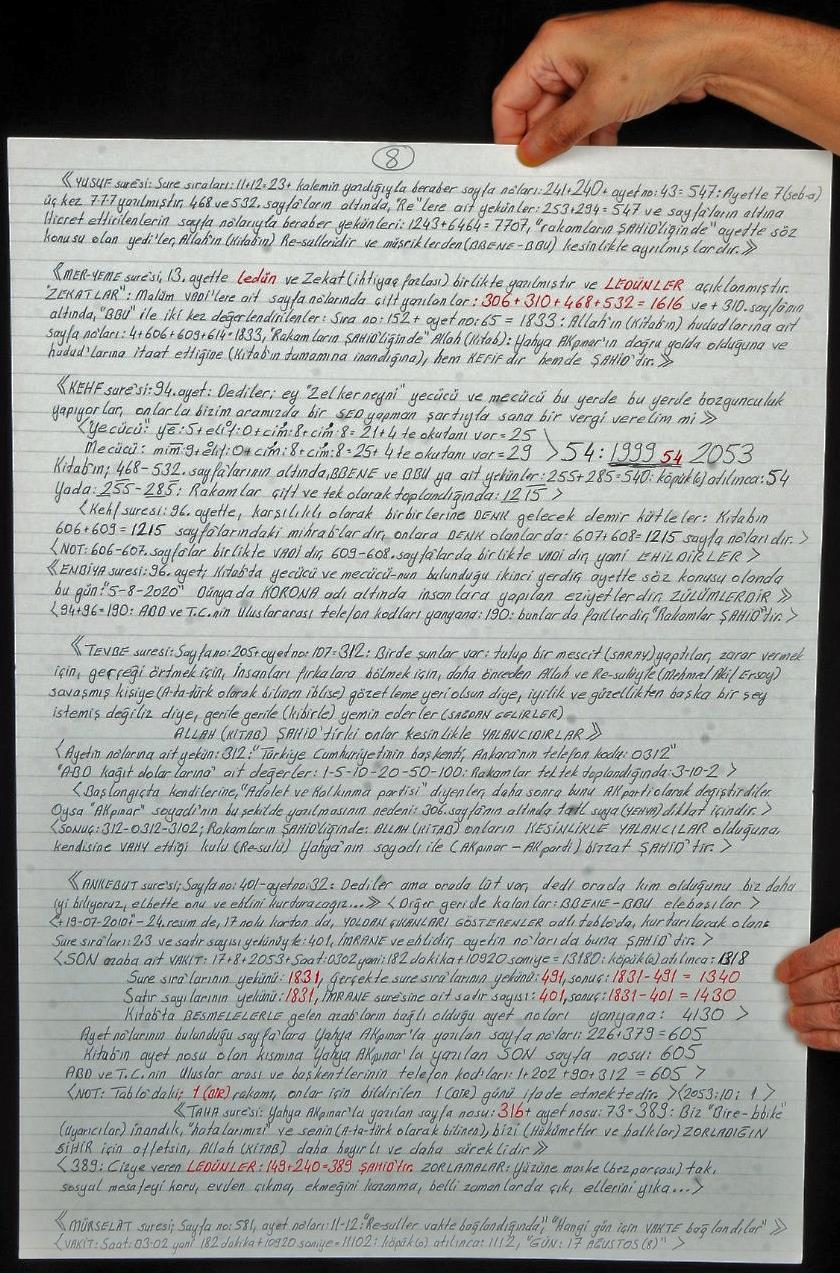 8
《YUSUF suresi: Sure sıraları: 11+12=23+ kalemin yazdığıyla beraber sayfa no'ları: 241+240+ ayet no: 43= 547: Ayette 7 (seb-a)
üç kez 777 yazılmıştır. 468 ve 532. sayfa'ların altında, "Re"lere ait yekünler: 253+294=547 ve sayfa'ların altına
Hicret ettirilenlerin sayfa no'larıyla beraber yekünleri: 1243+6464=7707, "rakamların ŞAHİD'liğinde" ayette söz
konusu olan yedi'ler, Allah'ın (Kitab'ın) Re-sulleridir ve müşriklerden (BBENE-BBU) kesinlikle ayrılmışlardır.》
《MER-YEME suresi, 13. ayette ledün ve Zekat (ihtiyaç fazlası) birlikte yazılmıştır ve LEDÜNLER açıklanmıştır.
"ZEKATLAR": Malüm VADİ'lere ait sayfa no'larında çift yazılanlar: 306+310+468+532= 1616 ve + 310. sayfa'nın
altında, "BBU" ile iki kez değerlendirilenler: Sıra no: 152+ ayet no: 65 = 1833: Allah'ın (Kitab'ın) hudud'larına ait
sayfa no'ları: 4+606+609+614=1833, "Rakamların ŞAHİD'liğinde" Allah (Kitab): Yahya AKpınar'ın doğru yolda olduğuna ve
hudud'larına itaat ettiğine (Kitab'ın tamamına inandığına), hem KEFİF dir hemde ŞAHİD'tir.》
《KEHF suresi: 94. ayet: Dediler; ey "Zelkerneyni" yecücü ve mecücü bu yerde bu yerde bozgunculuk
yapıyorlar, onlarla bizim aramızda bir SED yapman şartıyla sana bir vergi verelim mi》
〈Yecücü: ye: 5+elif: 0+cim: 8+cim: 8= 21+4 te okutanı var= 25
Mecücü: mim: 9+elif: 0+cim: 8+cim: 8= 25+4 te okutanı var= 29 〉54: 1999 54 2053
Kitab'ın; 468-532. sayfa'larının altında, BBENE ve BBU ya ait yekünler: 255+285=540: köpük(o) atılınca: 54
Yada: 255-285: Rakamlar çift ve tek olarak toplandığında: 1215 〉
〈Kehf suresi: 96. ayette, karşılıklı olarak birbirlerine DENK gelecek demir kütleler: Kitab'ın
606+609= 1215 sayfa'larındaki mihrab'lardır, onlara DENK olanlarda: 607+608= 1215 sayfa no'ları dır. 〉
〈NOT: 606-607. sayfa'lar birlikte VADİ dir, 609-608. sayfa'larda birlikte VADİ dir, yani EHİLDİRLER 〉
《ENBİYA suresi: 96. ayet; Kitab'ta yecücü ve mecücü-nun bulunduğu ikinci yerdir, ayette söz konusu olanda
bu gün: "5-8-2020" Dünya'da KORONA adı altında insanlara yapılan eziyetlerdir, ZÜLÜMLERDİR》
〈94+96=190: ABD ve T.C.'nin Uluslararası telefon kodları yanyana: 190: bunlar'da faillerdir, "Rakamlar ŞAHİD"tir. 〉
《TEVBE suresi: Sayfa no: 205+ ayet no: 107=312: Birde şunlar var: tutup bir mescit (SARAY) yaptılar, zarar vermek
için, gerçeği örtmek için, İnsanları fırkalara bölmek için, daha önceden Allah ve Re-sulüyle (Mehmet Akif Ersoy)
savaşmış kişiye (A-ta-türk olarak bilinen iblise) gözetleme yeri olsun diye, iyilik ve güzellikten başka bir şey
istemiş değiliz diye, gerile gerile (kibirle) yemin ederler (SAĞDAN GELİRLER)
ALLAH (KİTAB) ŞAHİD'tirki onlar kesinlikle YALANCIDIRLAR》
〈Ayetin no'larına ait yekün: 312: "Türkiye Cumhuriyetinin başkenti, Ankara'nın telefon kodu: 0312"
"ABD kağıt dolar'larına" ait değerler: 1-5-10-20-50-100: Rakamlar tek tek toplandığında: 3-10-2 〉
〈Başlangıçta kendilerine, "Adalet ve Kalkınma partisi" diyenler, daha sonra bunu AK parti olarak değiştirdiler
Oysa "AKpınar" soyadı'nın bu şekilde yazılmasının nedeni: 306. sayfa'nın altında tatlı suya (YEHYA) dikkat içindir. 〉
〈SONUÇ: 312-0312-3102; Rakamların ŞAHİD'liğinde: ALLAH (KİTAB) onların KESİNLİKLE YALANCILAR olduğuna,
kendisine VAHY ettiği kulu (Re-sulü) Yahya'nın soyadı ile (AKpınar - AKpardi) bizzat ŞAHİD'tir. 〉
《ANKEBUT suresi; Sayfa no: 401-ayet no: 32: Dediler ama orada lüt var, dedi orada kim olduğunu biz daha
iyi biliyoruz, elbette onu ve ehlini kurtaracağız...》〈Diğer geride kalanlar: BBENE-BBU elebaşılar 〉
〈+19-07-2010+-24. resim de, 17 nolu karton da, YOLDAN ÇIKANLARI GÖSTERENLER adlı tablo'da, kurtarılacak olan:
Sure sıra'ları: 2/3 ve satır sayısı yekünüyle: 401, İMRANE ve ehlidir, ayetin no'ları da buna ŞAHİD'tir. 〉
〈SON azaba ait VAKİT: 17+8+2053+Saat: 0302 yani: 182 dakika+10920 saniye=13180: köpük(o) atılınca: 1318
Sure sıra'larının yekünü: 1831, Gerçekte sure sıra'larının yekünü: 491, sonuç: 1831-491 = 1340
Satır sayılarının yekünü: 1831, İMRANE suresine ait satır sayısı: 401, sonuç: 1831-401 = 1430
Kitab'ta BESMELELERLE gelen azab'ların bağlı olduğu ayet no'ları yanyana: 4130 〉
Ayet no'larının bulunduğu sayfa'lara Yahya AKpınar'la yazılan sayfa no'ları: 226+379=605
Kitab'ın ayet nosu olan kısmına Yahya AKpınar'la yazılan SON sayfa nosu: 605
ABD ve T.C. nin Uluslar arası ve başkentlerinin telefon kod'ları: 1+202 +90+312 = 605 〉
〈NOT: Tablo'daki; 1 (BİR) rakamı, onlar için bildirilen 1 (BİR) günü ifade etmektedir. 〉〈2053:10: 1 〉
《TAHA suresi: Yahya AKpınar'la yazılan sayfa nosu: 316+ ayet nosu: 73= 389: Biz "Bire-bbike"
(uyarıcılar) inandık, "hatalarımızı" ve senin (A-ta-türk olarak bilinen), bizi (Hükümetler ve halklar) ZORLADIĞIN
SİHİR için affetsin, Allah (KİTAB) daha hayırlı ve daha süreklidir》
〈389: Cizye veren LEDÜNLER: 149+240=389 ŞAHİD'tir. ZORLAMALAR: Yüzüne maske (bez parçası) tak,
sosyal mesafeyi koru, evden çıkma, ekmeğini kazanma, belli zamanlarda çık, ellerini yıka...〉
《MÜRSELAT suresi; Sayfa no: 581, ayet no'ları: 11-12: "Re-suller vakte bağlandığında", "Hangi gün için VAKTE bağlandılar"》
〈VAKİT: Saat: 03-02 yani 182 dakika+10920 saniye=11102: köpük(o) atılınca: 1112, "GÜN: 17 AĞUSTOS (8)" 〉